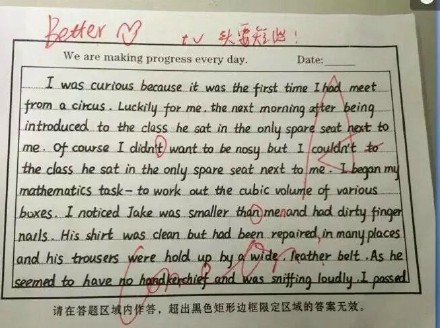 Better
头要短些!
We are making progress every day. Date:
I was curious because it was the first time I had meet
from a circus. Luckily for me, the next morning after being
introduced to the class he sat in the only spare seat next to
me. Of course I didn't want to be nosy but I couldn't to
the class he sat in the only spare seat next to me. I began my
mathematics task - to work out the cubic volume of various
boxes. I noticed Jake was smaller than men and had dirty finger
nails. His shirt was clean but had been repaired, in many places
and his trousers were hold up by a wide, leather belt. As he
seemed to have no handkerchief and was sniffing loudly. I passed
请在答题区域内作答，超出黑色矩形边框限定区域的答案无效。